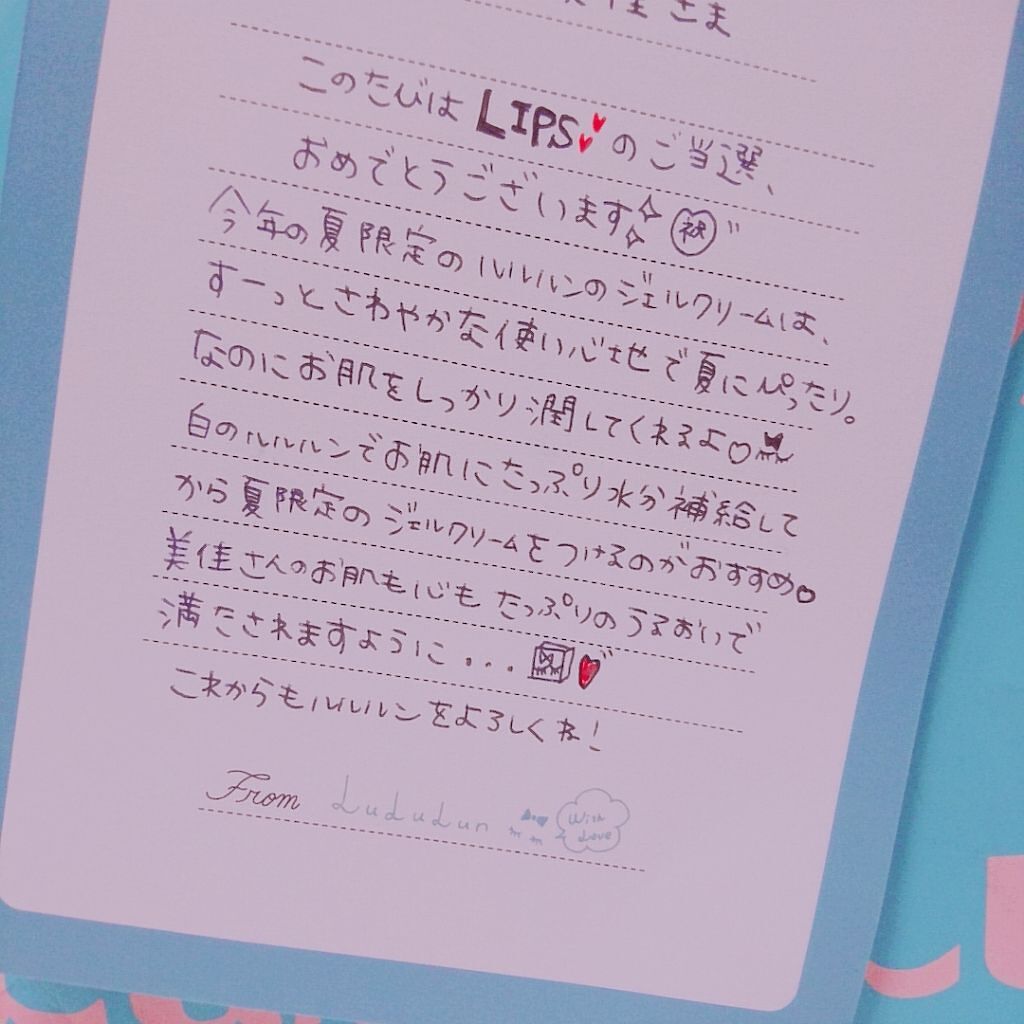 佳さま
このたびは LIPS のご当選、
おめでとうございます 祝
今年の夏限定のルルルンのジェルクリームは、
すーっとさわやかな使い心地で夏にぴったり。
なのにお肌をしっかり潤してくれるよ♡
白のルルルンでお肌にたっぷり水分補給して
から夏限定のジェルクリームをつけるのがおすすめ♡
美佳さんのお肌も心もたっぷりのうるおいで
満たされますように...
これからもルルルンをよろしくね!
From LuLuLun With Love